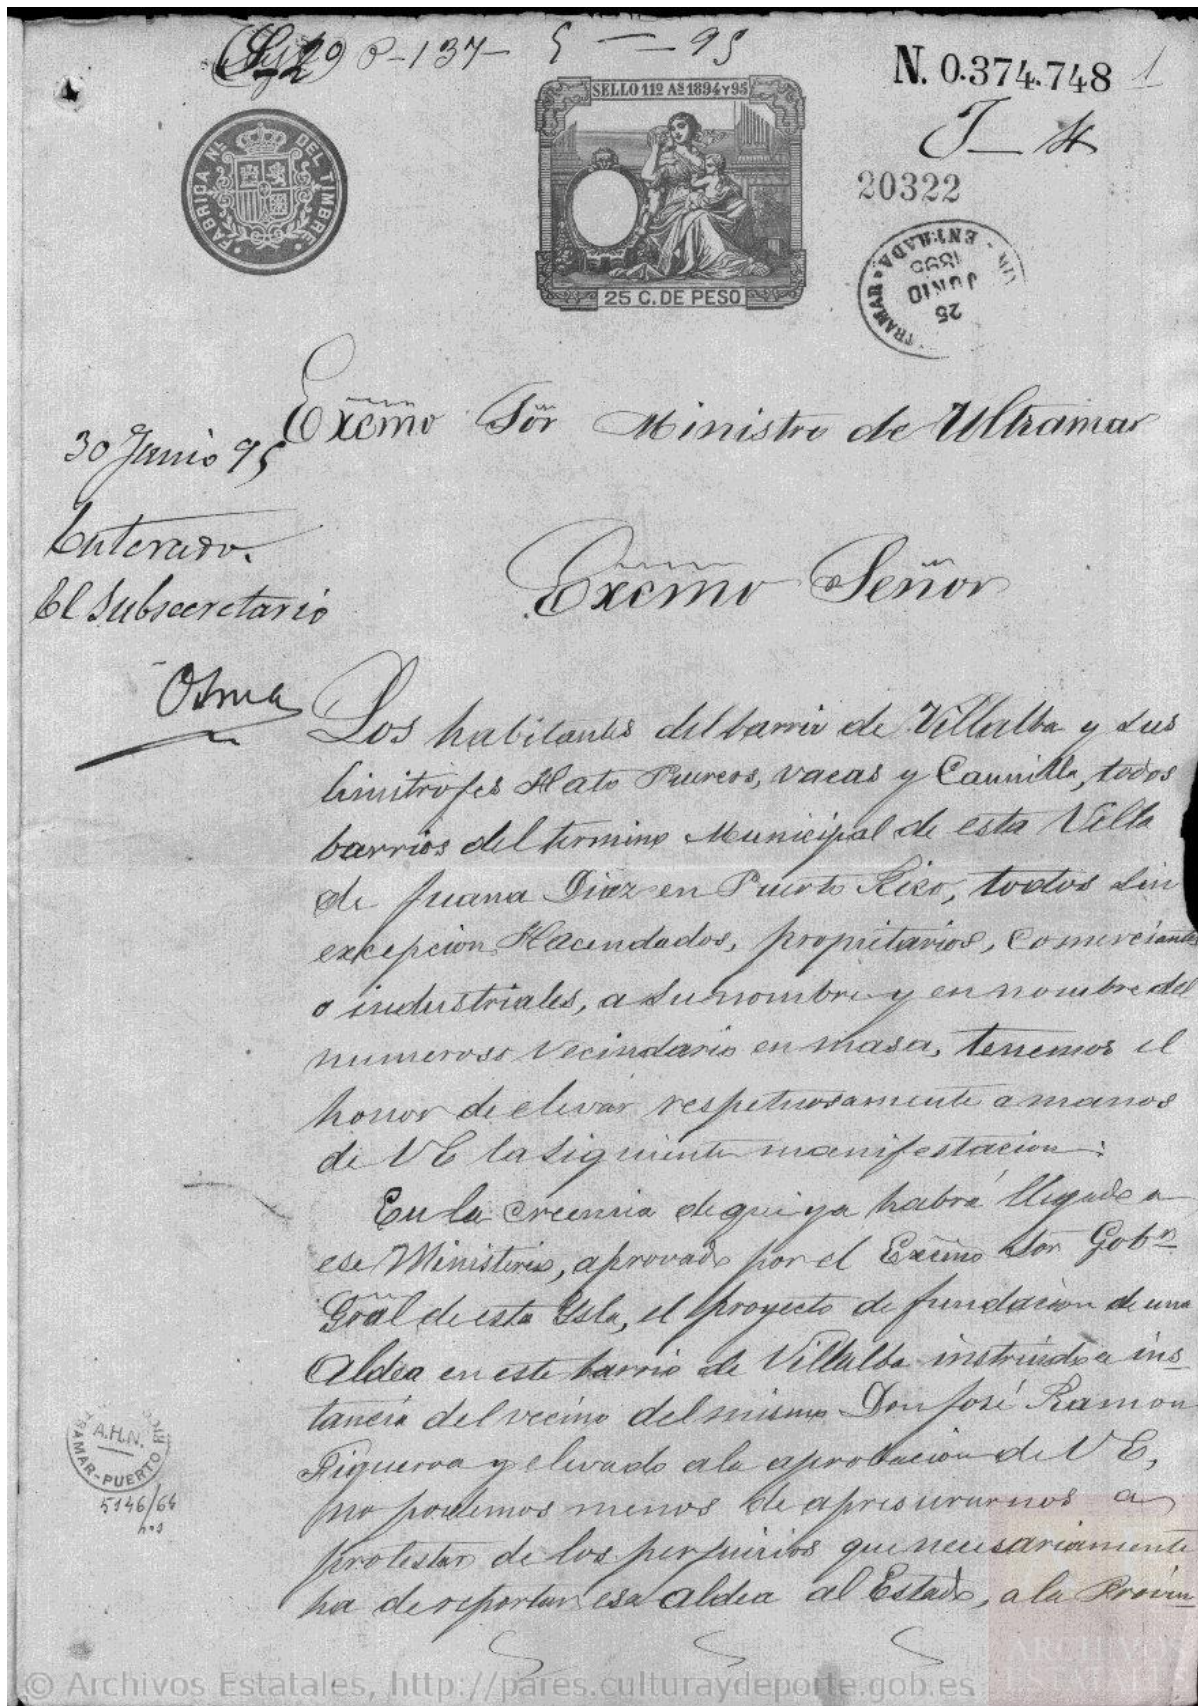 P-137- 5 — 95
N. 0.374.748 1
SELLO 11º AS 1894 Y 95
FABRICA NL DEL TIMBRE
25 C. DE PESO
20322
TRAMAR - ENTRADA
25 JUNIO 1895
Excmo Sõr Ministro de Ultramar
30 Junio 95
Enterado.
El Subsecretario
Osma
Excmo Señor
Los habitantes del barrio de Villalba y sus
limitrofes Hato Puercos, vacas y Caonilla, todos
barrios del termino Municipal de esta Villa
de Juana Diaz en Puerto Rico, todos sin
excepcion Hacendados, propietarios, Comerciantes
o industriales, a su nombre y en nombre del
numeroso vecindario en masa, tenemos el
honor de elevar respetuosamente a manos
de VE la siguiente manifestacion:
En la creencia de que ya habrá llegado a
ese Ministerio, aprovado por el Excmo Sor Gobr
Gral de esta Ysla, el proyecto de fundacion de una
Aldea en este barrio de Villalba instruido a ins_
tancia del vecino del mismo Don José Ramon
Figueroa y elevado a la aprobacion de VE,
no podemos menos de apresurarnos a
protestar de los perjuicios que necesariamente
ha de reportar esa aldea al Estado, a la Provin_
A.H.N.
TRAMAR-PUERTO RI
5146/64
© Archivos Estatales, http://pares.culturaydeporte.gob.es
ARCHIVOS
ESTATALES